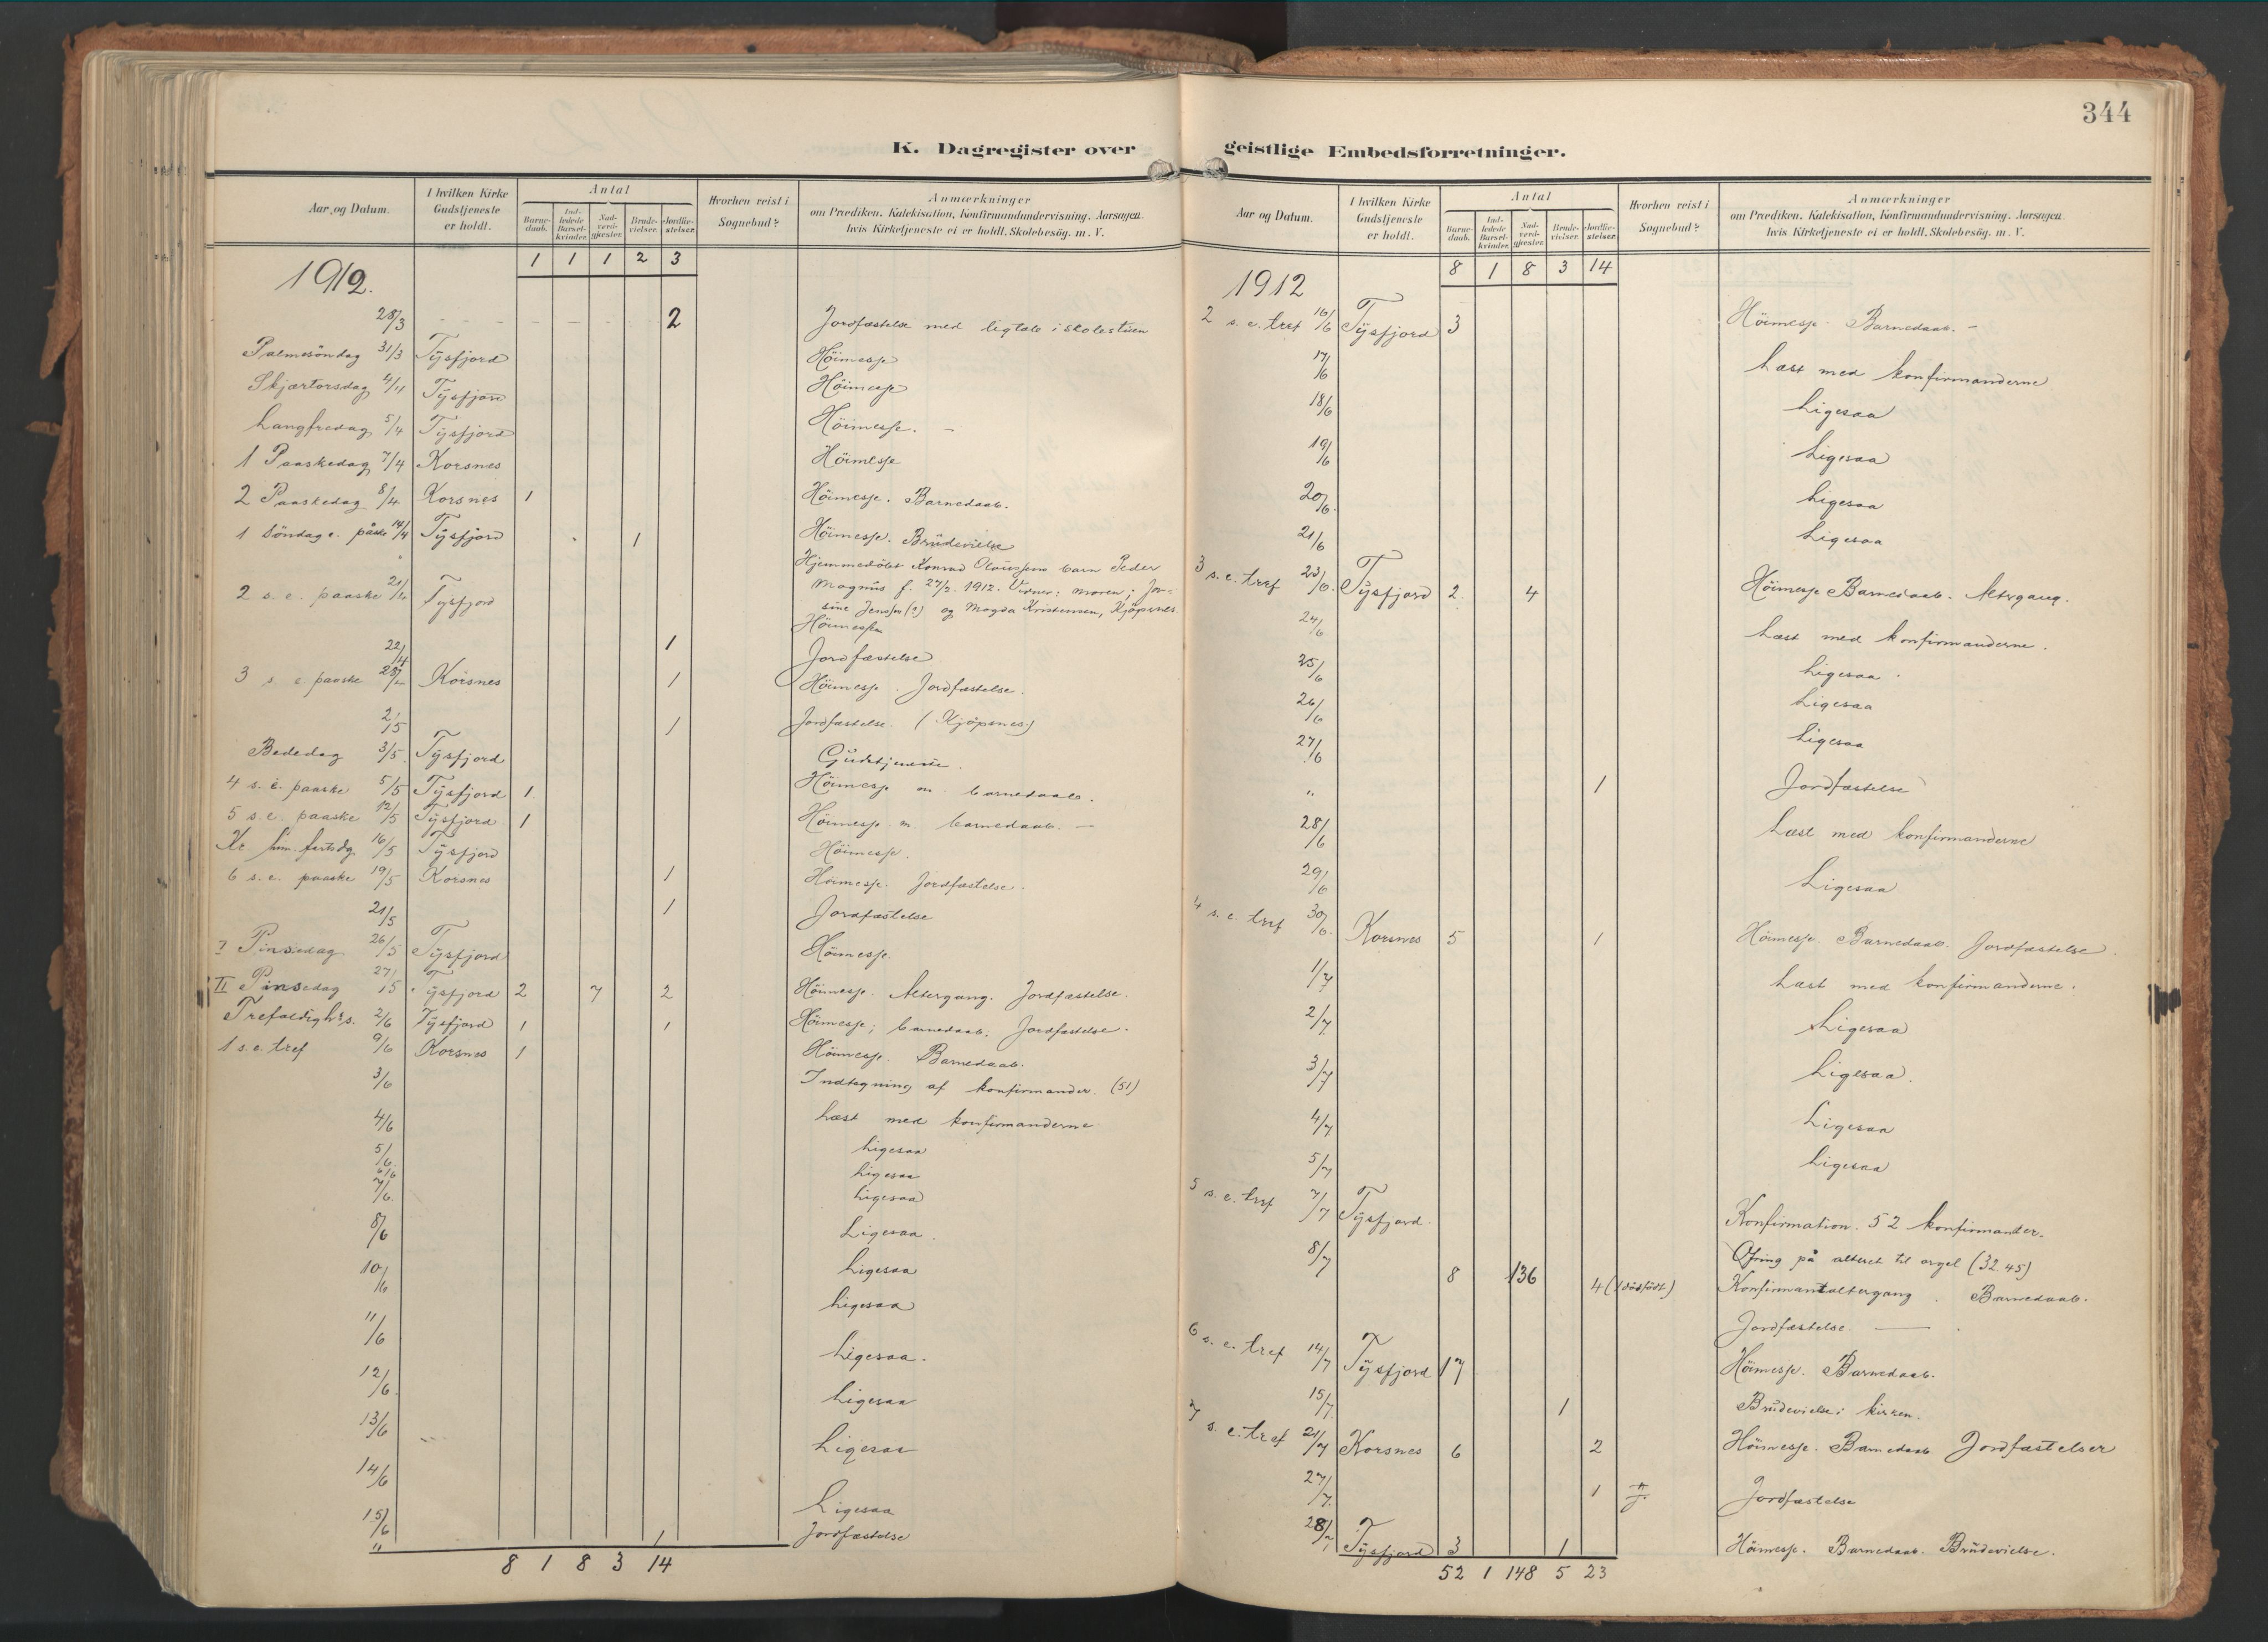 344
K. Dagregister over geistlige Embedsforretninger.
Aar og Datum. I hvilken Kirke Gudstjeneste er holdt. Antal Barnedaab. Indledede Barselkvinder. Nadverdgjæster. Brudevielser. Jordfæstelser. Hvorhen reist i Sognebud? Anmærkninger om Prædiken, Katekisation, Konfirmandundervisning, Aarsagen hvis Kirketjeneste ei er holdt, Skolebesög. m. V.
1 1 1 2 3
1912.
28/3 2 Jordfæstelse med ligtale i skolestuen
Palmesöndag 31/3 Tysfjord Höimesse
Skjærtorsdag 4/4 Tysfjord Höimesse
Langfredag 5/4 Tysfjord Höimesse. -
1 Paaskedag 7/4 Korsnes Höimesse
2 Paaskedag 8/4 Korsnes 1 Höimesse. Barnedaab.
1 Söndag e. påske 14/4 Tysfjord 1 Höimesse. Brudevielse
Hjemmedöbt Konrad Olaussens barn Peder
2 s. e. paaske 21/4 Tysfjord Magnus f. 27/2. 1912. Vidner: moren; Jo-
sine Jensen (?) og Magda Kristensen, Kjöpsnes.
Höimesse
22/4 1 Jordfæstelse
3 s. e. paaske 28/4 Korsnes 1 Höimesse. Jordfæstelse.
2/5 1 Jordfæstelse. (Kjöpsnes)
Bededag 3/5 Tysfjord Gudstjeneste.
4 s. e. paaske 5/5 Tysfjord 1 Höimesse m. barnedaab.
5 s. e. paaske 12/5 Tysfjord 1 Höimesse m. barnedaab. -
Kr. him. fartsdg 16/5 Tysfjord Höimesse.
6 s. e. paaske 19/5 Korsnes 1 Höimesse. Jordfæstelse.
21/5 1 Jordfæstelse
I Pinsedag 26/5 Tysfjord Höimesse.
II Pinsedag 27/5 Tysfjord 2 7 2 Höimesse. Altergang. Jordfæstelse.
Trefoldigh.s. 2/6 Tysfjord 1 1 Höimesse; barnedaab. Jordfæstelse.
1 s. e. tref 9/6 Korsnes 1 Höimesse. Barnedaab.
3/6 Indtegning af konfirmander. (51)
4/6 Læst med konfirmanderne
5/6 Ligesaa
6/6 Ligesaa
7/6. Ligesaa
8/6 Ligesaa.
10/6 Ligesaa
Ligesaa
11/6 Ligesaa.
12/6. Ligesaa
13/6 Ligesaa
14/6 Ligesaa
15/6
" 1 Jordfæstelse
8 1 8 3 14
Aar og Datum. I hvilken Kirke Gudstjeneste er holdt. Antal Barnedaab. Indledede Barselkvinder. Nadverdgjæster. Brudevielser. Jordfæstelser. Hvorhen reist i Sognebud? Anmærkninger om Prædiken, Katekisation, Konfirmandundervisning, Aarsagen hvis Kirketjeneste ei er holdt, Skolebesög. m. V.
8 1 8 3 14
1912
2 s. e. tref 16/6 Tysfjord 3 Höimesse. Barnedaab. -
17/6 Læst med konfirmanderne
18/6 Ligesaa
19/6 Ligesaa
20/6. Ligesaa
21/6 Ligesaa
3 s. e. tref 23/6. Tysfjord 2 4 Höimesse Barnedaab. Altergang.
24/6 Læst med konfirmanderne.
25/6 Ligesaa.
26/6 Ligesaa
27/6 Ligesaa
" 1 Jordfæstelse
28/6 Læst med konfirmanderne
29/6 Ligesaa
4 s. e. tref 30/6. Korsnes 5 1 Höimesse. Barnedaab. Jordfæstelse.
1/7 Læst med konfirmanderne.
2/7 Ligesaa
3/7 Ligesaa.
4/7 Ligesaa
5/7 Ligesaa
5 s. e. tref 7/7 Tysfjord. Konfirmation. 52 konfirmander.
8/7 Ofring på alteret til orgel (32.45)
8 136 4 (1 dödfödt) Konfirmantaltergang. Barnedaab.
Jordfæstelse. -
6 s. e. tref 14/7 Tysfjord 17 Höimesse. Barnedaab.
15/7. 1 Brudevielse i kirken.
7 s. e. tref 21/7 Korsnes 6 2 Höimesse. Barnedaab Jordfæstelser
27/7. 1 Jordfæstelse
28/7 Tysfjord 3 1 Höimesse. Barnedaab. Brudevielse.
52 1 148 5 23